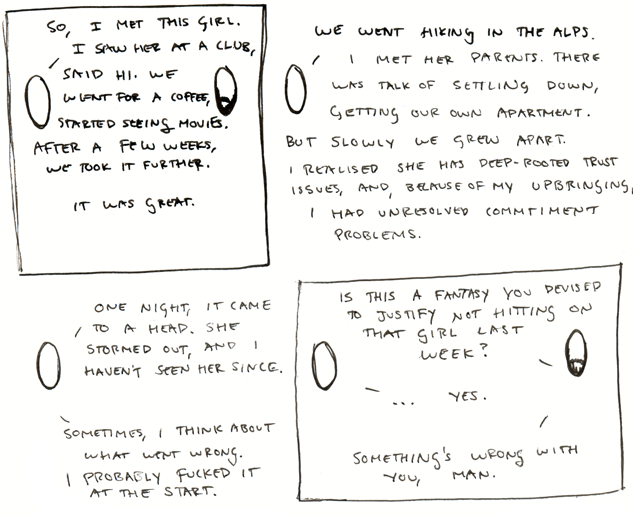 SO, I MET THIS GIRL.
I SAW HER AT A CLUB,
SAID HI. WE
WENT FOR A COFFEE,
STARTED SEEING MOVIES.
AFTER A FEW WEEKS,
WE TOOK IT FURTHER.
IT WAS GREAT.
WE WENT HIKING IN THE ALPS.
I MET HER PARENTS. THERE
WAS TALK OF SETTLING DOWN,
GETTING OUR OWN APARTMENT.
BUT SLOWLY WE GREW APART.
I REALISED SHE HAS DEEP-ROOTED TRUST
ISSUES, AND, BECAUSE OF MY UPBRINGING,
I HAD UNRESOLVED COMMTIMENT
PROBLEMS.
ONE NIGHT, IT CAME
TO A HEAD. SHE
STORMED OUT, AND I
HAVEN'T SEEN HER SINCE.
SOMETIMES, I THINK ABOUT
WHAT WENT WRONG.
I PROBABLY FUCKED IT
AT THE START.
IS THIS A FANTASY YOU DEVISED
TO JUSTIFY NOT HITTING ON
THAT GIRL LAST
WEEK?
... YES.
SOMETHING'S WRONG WITH
YOU, MAN.